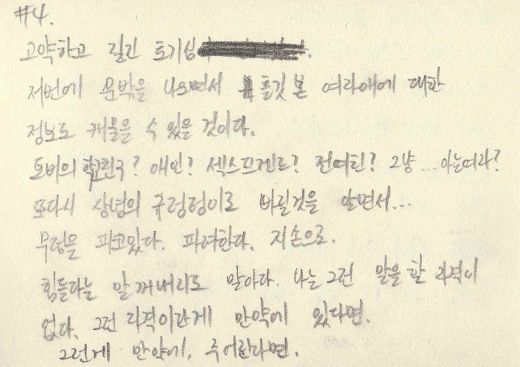 #4.
고약하고 질긴 호기심
저번에 문밖을 나오면서 흘깃 본 여자애에 대한
정보도 캐물을 수 있을 것이다.
도비의 친구? 애인? 섹스프렌드? 전여친? 그냥... 아는여자?
또다시 상념의 구렁텅이로 빠질것을 알면서...
무덤을 파고있다. 파려한다. 지손으로.
힘들다는 말 꺼내지도 말아라. 나는 그런 말을 할 자격이
없다. 그런 자격이란게 만약에 있다면.
그런게 만약에, 주어진다면.